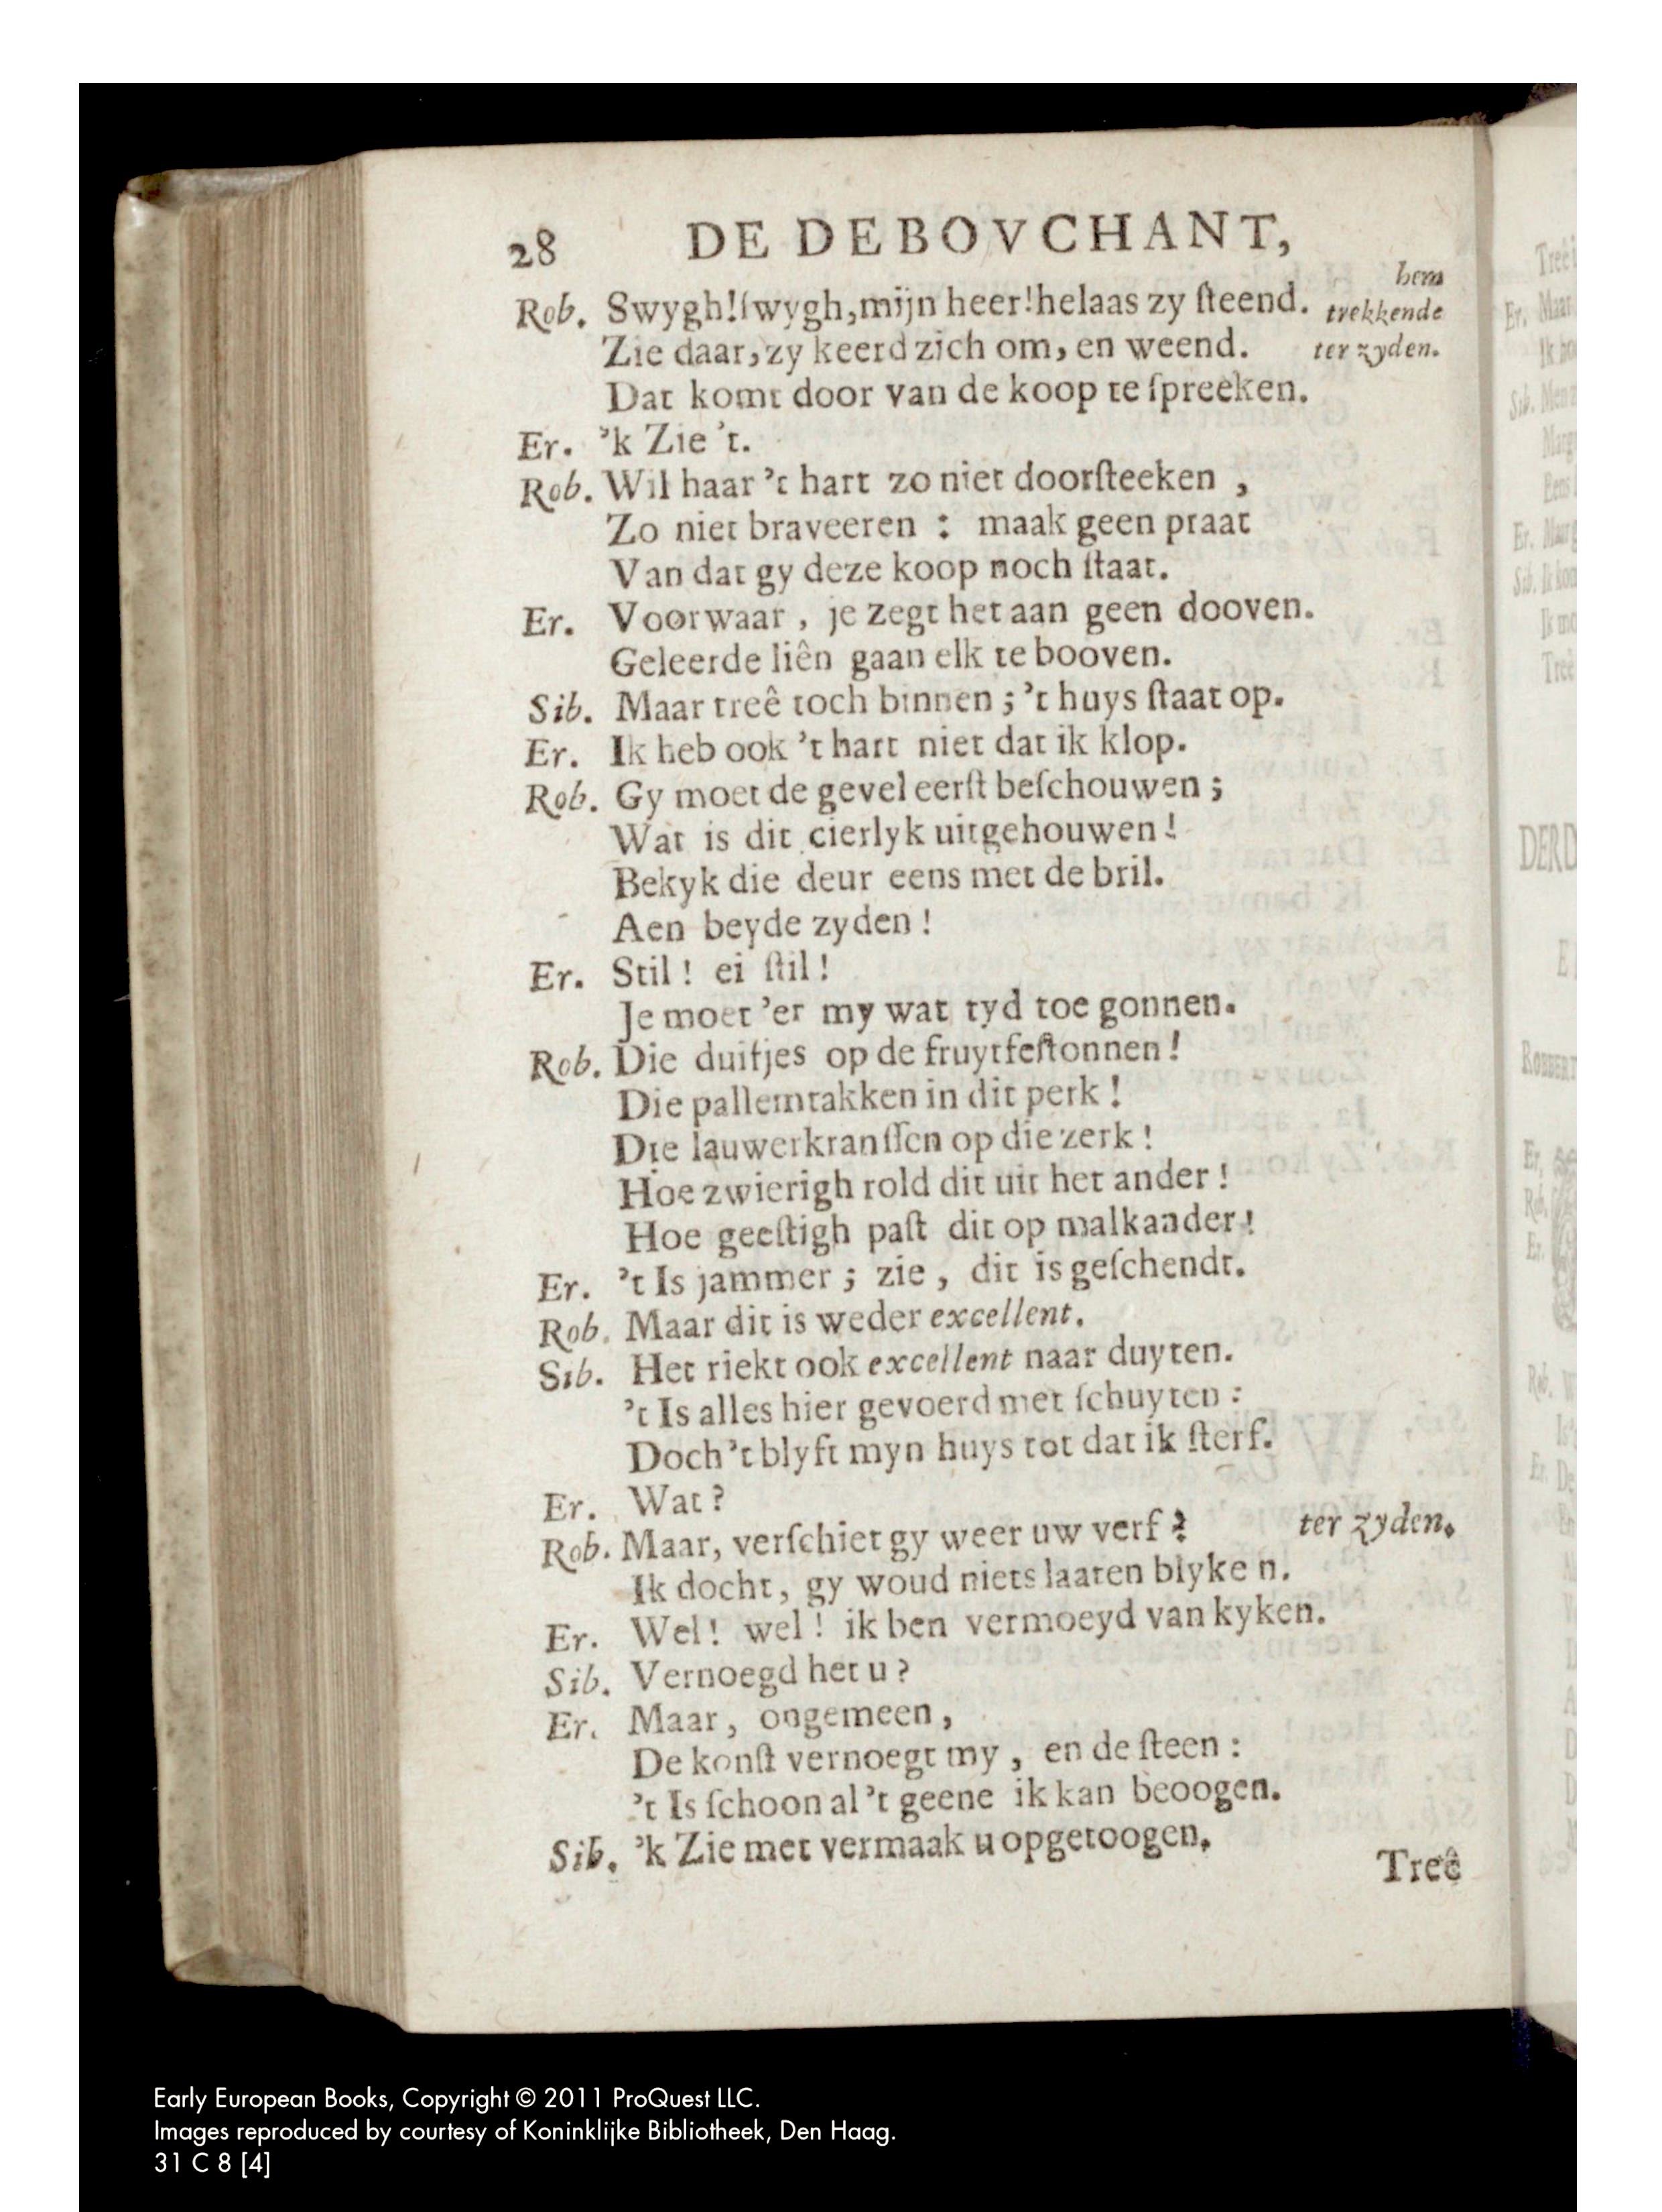 28 DE DEBOVCHANT,
Rob. Swygh!ſwygh,mijn heer!helaas zy ſteend. hem trekkende
Zie daar,zy keerd zich om, en weend. ter zyden.
Dat komt door van de koop te ſpreeken.
Er. 'k Zie 't.
Rob. Wil haar 't hart zo niet doorſteeken ,
Zo niet braveeren : maak geen praat
Van dat gy deze koop noch ſtaat.
Er. Voorwaar , je zegt het aan geen dooven.
Geleerde liên gaan elk te booven.
Sib. Maar treê toch binnen ; 't huys ſtaat op.
Er. Ik heb ook 't hart niet dat ik klop.
Rob. Gy moet de gevel eerſt beſchouwen ;
Wat is dit cierlyk uitgehouwen !
Bekyk die deur eens met de bril.
Aen beyde zyden !
Er. Stil ! ei ſtil !
Je moet 'er my wat tyd toe gonnen.
Rob. Die duifjes op de fruytfeſtonnen !
Die pallemtakken in dit perk !
Die lauwerkranſſen op die zerk !
Hoe zwierigh rold dit uit het ander !
Hoe geeſtigh paſt dit op malkaader !
Er. 't Is jammer ; zie , dit is geſchendt.
Rob. Maar dit is weder excellent.
Sib. Het riekt ook excellent naar duyten.
't Is alles hier gevoerd met ſchuyten :
Doch 't blyft myn huys tot dat ik ſterf.
Er. Wat ?
Rob. Maar, verſchiet gy weer uw verf ? ter zyden.
Ik docht, gy woud niets laaten blyke n.
Er. Wel ! wel ! ik ben vermoeyd van kyken.
Sib. Vernoegd het u ?
Er. Maar , ongemeen ,
De konſt vernoegt my , en de ſteen :
't Is ſchoon al 't geene ik kan beoogen.
Sib. 'k Zie met vermaak u opgetoogen.
Treê
Early European Books, Copyright © 2011 ProQuest LLC.
Images reproduced by courtesy of Koninklijke Bibliotheek, Den Haag.
31 C 8 [4]